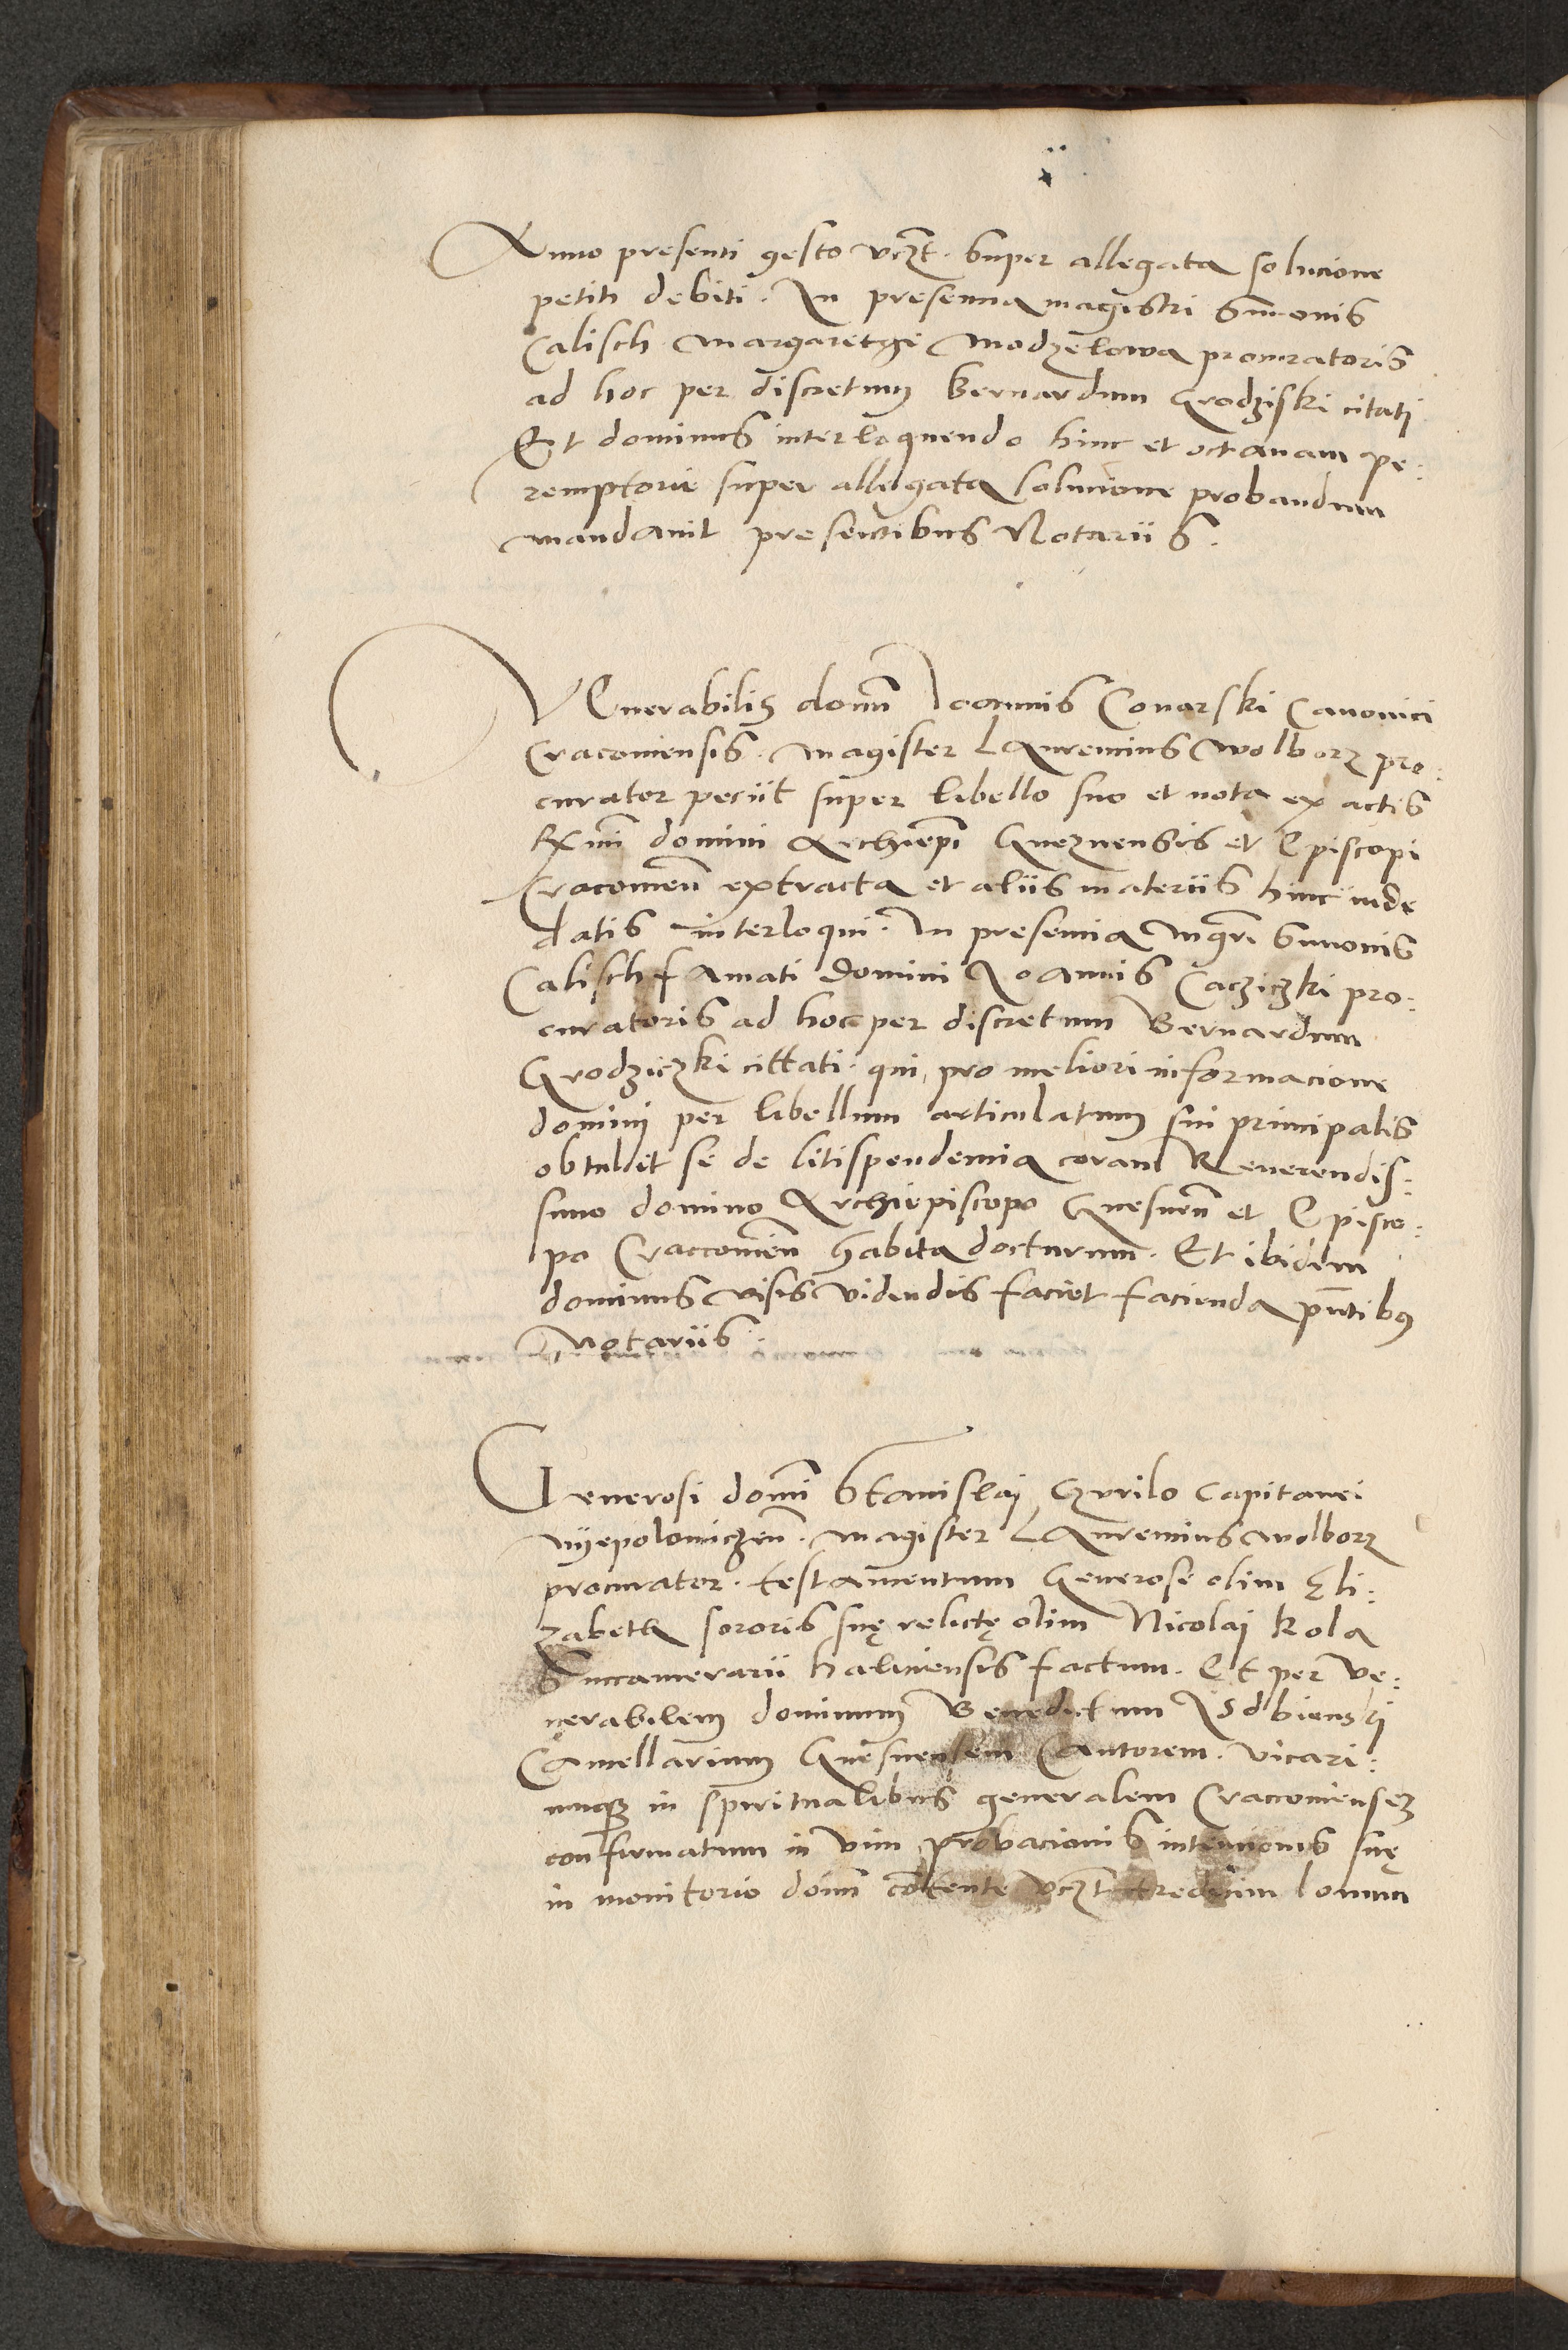 Anno presenti gesto vczt. Super allegata solucione
petiti debiti. In presencia magistri Simonis
Calisch Margarethe Modzelowa procuratoris
ad hoc per discretum Bernardum Grodziski citati
Et dominus interloquendo hinc et octavam pe:
remptorie super allegata solucione probandum
mandavit presentibus Notariis.
VEnerabilis domi Joannis Conarski Canonici
Cracoviensis. Magister Laurencius Wolborz pro:
curator peciit super libello suo et nota ex actis
Rmi domini Archiepi Gneznensis et Episcopi
Cracovien extracta et aliis materiis hinc inde
datis interloqui. In presencia Mgri Simonis
Calisch famati Domini Joannis Cacziczki pro:
curatoris ad hoc per discretum Bernardum
Grodziczki cittati. qui pro meliori informacione
domini per libellum articulatum sui principalis
obtulit se de litispendencia coram Reverendis:
simo domino Archiepiscopo Gnesnen et Episco:
po Craccovien habita docturum. Et ibidem
dominus visis videndis faciet facienda pntibus
Notariis.
Generosi domi Stanislaj Czvrilo Capitanei
Nyepolomiczen. Magister Laurencius Wolborz
procurator. testamentum Generose olim Eli:
zabeth sororis sue relicte olim Nicolaj Kola
Succamerarii haliciensis factum. Et per Ve:
nerabilem dominum Benedictum Isdbienskj
Cancellarium Gnesnensem Cantorem. Vicari:
umque in spiritualibus generalem Craccoviensem
confirmatum in vim probacionis intencionis sue
in monitorio domi contente vczt tredecim